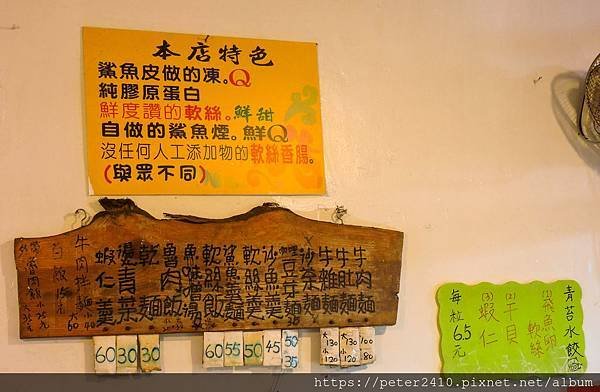 本店特色
鯊魚皮做的凍。Q
純膠原蛋白
鮮度讚的軟絲。鮮甜
自做的鯊魚煙。鮮Q
沒任何人工添加物的軟絲香腸。
(與眾不同)
牛肉麵
牛肚麵
牛雜麵
沙茶麵
沙魚羹
軟絲羹
鯊魚羹
軟絲飯
魯肉飯
乾麵
燙青菜
蝦仁羹
大100
小80
大130
小120
大130
小120
50
35
45
50
55
60
30
30
60
青苔水餃
(1)飛魚卵
軟絲
(2)干貝
(3)蝦仁
每粒6.5元
https://peter2410.pixnet.net/album